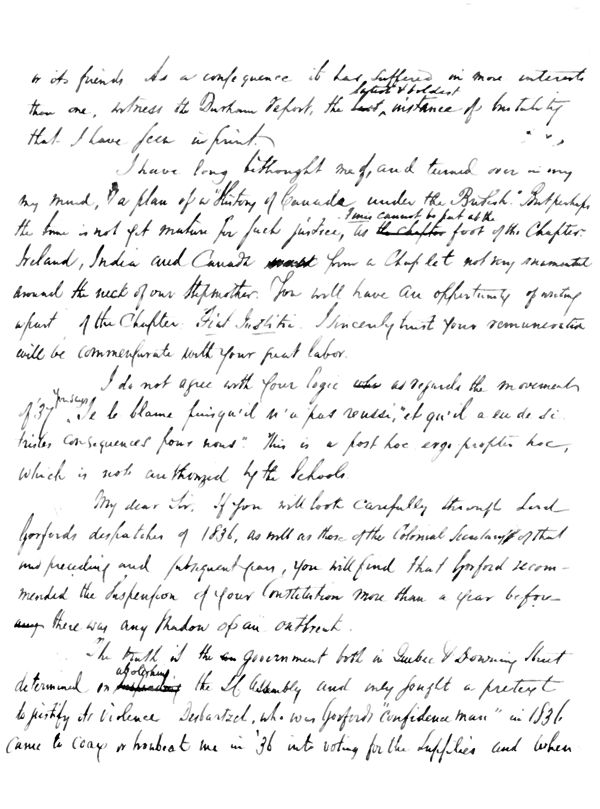 or its friends As a consequence it has suffered in more interests
latest & boldest
than one, witness the Durham report, the last instance of brutality
that I have seen in print.
I have long bethought me of, and turned over in my
my mind, a plan of a "History of Canada under the British". But perhaps
the time is not yet mature for such justice, as the chapter Finis cannot be put at the foot of this Chapter.
Ireland, India and Canada form a Chaplet not very ornamental
around the neck of our Stepmother. You will have an opportunity of writing
a part of the Chapter. Fiat Justitia. I sincerely trust your remuneration
will be commensurate with your great labor.
I do not agree with your logic as regards the movement
of '37 you says "Je le blame puisqu'il n'a pas reussi," et qu'il a eu de si
tristes consequences pour nous". This is a post hoc ergo propter hoc,
which is not authorized by the Schools
My dear Sir. If you will look carefully through Lord
Gosfords despatches of 1836, as well as those of the Colonial Secretary of that
and preceding and subsequent years, you will find that Gosford recom-
mended the Suspension of your Constitution more than a year before
any there was any shadow of an outbreak.
The truth is the government both in Quebec & Downing Street
abolishing
determined on suspending the Assembly and only sought a pretext
to justify its violence Debartzch, who was Gosford's "confidence man" in 1836
came to coax or browbeat me in '36 into voting for the Supplies and when